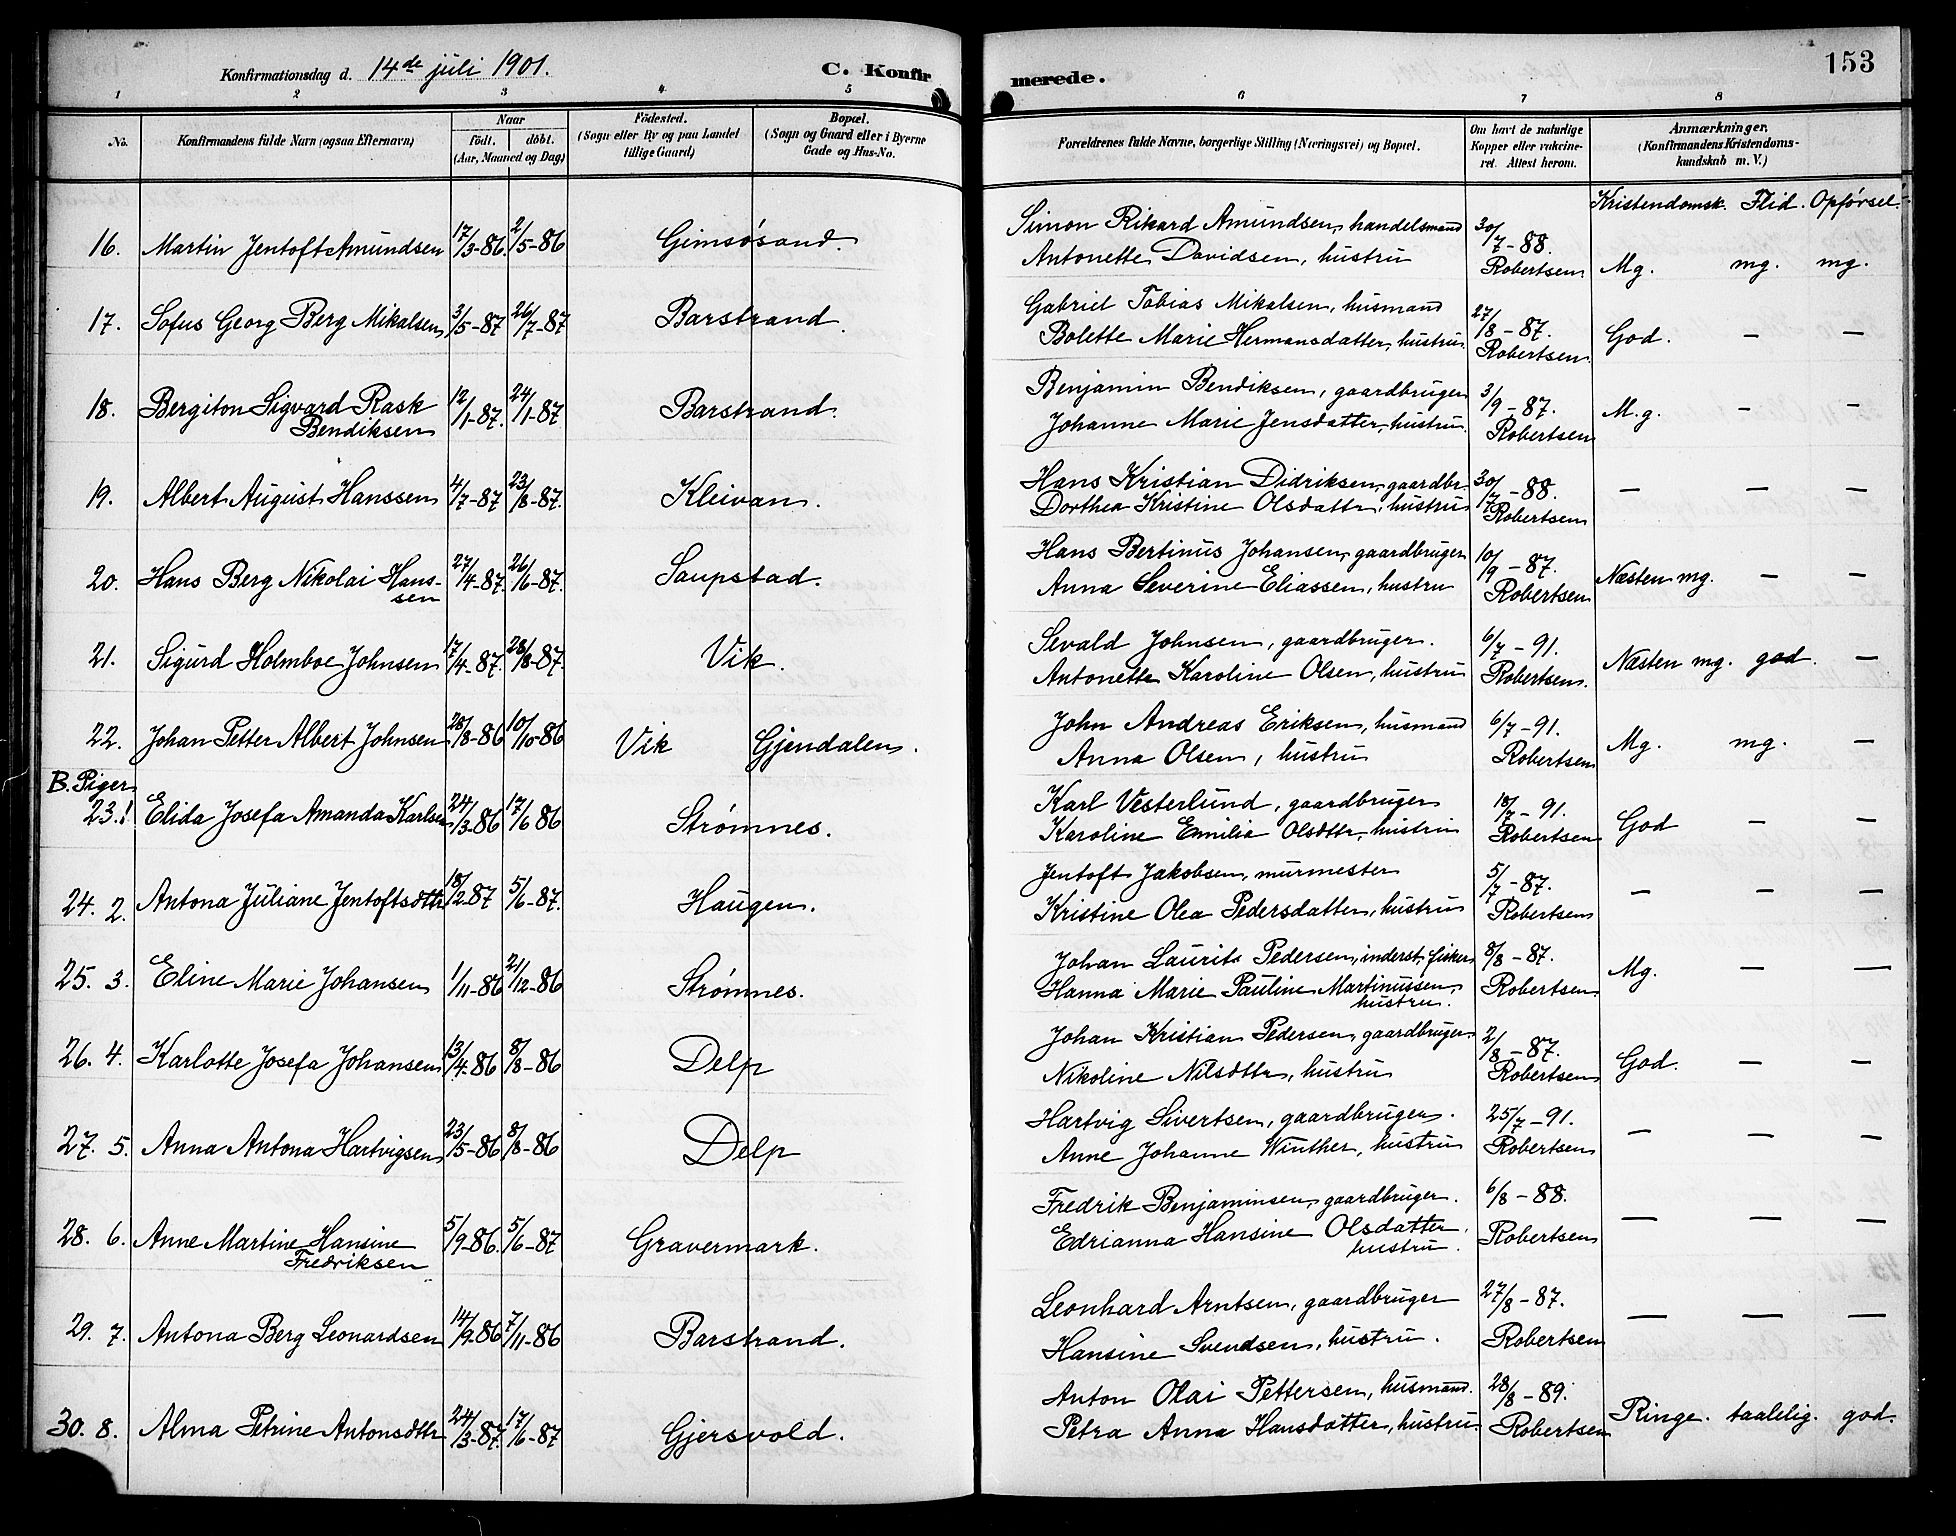 Konfirmationsdag d. 14de juli 1901. C. Konfirmerede. 153
1 2 3 4 5 6 7 8
No.
Konfirmandens fulde Navn (ogsaa Efternavn)
Naar
födt. döbt.
(Aar, Maaned og Dag)
Födested.
(Sogn eller By og paa Landet
tillige Gaard.)
Bopæl.
(Sogn og Gaard eller i Byerne
Gade og Hus-No.
Forældrenes fulde Navne, borgerlige Stilling (Næringsvei) og Bopæl.
Om havt de naturlige
Kopper eller vakcine-
ret. Attest herom.
Anmærkninger.
(Konfirmandens Kristendoms-
kundskab m. V.)
Kristendomsk. Flid. Opførsel.
16. Martin Jentoft Amundsen 17/3-86. 2/5-86 Gimsøsand.
Simon Rikard Amundsen, handelsmand
Antonette Davidsen, hustru
30/7-88. Robertsen Mg. mg. mg.
17. Sofus Georg Berg Mikalsen 3/5-87 26/7-87 Barstrand.
Gabriel Tobias Mikalsen, husmand
Bolette Marie Hermansdatter, hustru
27/8-87. Robertsen. God. — —
18. Bergiton Sigvard Rask
Bendiksen 12/1-87. 24/1-87 Barstrand.
Benjamin Bendiksen, gaardbruger
Johanne Marie Jensdatter, hustru.
3/9-87. Robertsen M.g. — —
19. Albert August Hanssen 4/7-87 23/8-87. Kleivan.
Hans Kristian Didriksen, gaardbr.
Dorthea Kristine Olsdattr, hustru
30/7-88. Robertsen — — —
20. Hans Berg Nikolai Hans-
sen 27/4-87. 26/6-87. Saupstad.
Hans Bertinus Johansen, gaardbruger
Anna Severine Eliassen, hustru
10/9-87. Robertsen Næsten mg. — —
21. Sigurd Holmboe Johnsen 17/4-87. 28/8-87. Vik.
Sevald Johnsen, gaardbruger.
Antonette Karoline Olsen, hustru
6/7-91. Robertsen. Næsten mg. god. —
22. Johan Petter Albert Johnsen 28/8-86 10/10-86 Vik Gjendalen.
John Andreas Eriksen, husmand
Anna Olsen, hustru
6/7-91. Robertsen Mg. mg. —
B. Piger
23. 1 Elida Josefa Amanda Karlsen 24/3-86 17/6 86 Strømnes.
Karl Vesterlund, gaardbruger
Karoline Emilie Olsdttr, hustru
18/7-91. Robertsen God — —
24. 2. Antona Juliane Jentoftsdttr 18/2-87 5/6-87. Haugen.
Jentoft Jakobsen, murmester
Kristine Olea Pedersdatter, hustru
5/7-87. Robertsen — — —
25. 3. Eline Marie Johansen 1/11-86 21/12-86 Strømnes.
Johan Laurits Pedersen, inderst, fisker
Hanna Marie Pauline Martinussen,
hustru.
8/8-87. Robertsen. Mg. — —
26. 4. Karlotte Josefa Johansen 13/4-86 8/8-86 Delp
Johan Kristian Pedersen, gaardbruger
Nikoline Nilsdttr, hustru
2/8-87. Robertsen God. — —
27. 5. Anna Antona Hartvigsen 23/5-86 8/8-86 Delp
Hartvig Sivertsen, gaardbruger.
Anne Johanne Winther, hustru
25/7-91. Robertsen — — —
28. 6. Anne Martine Hansine
Fredriksen 5/9-86. 5/6-87 Gravermark.
Fredrik Benjaminsen, gaardbruger.
Edrianna Hansine Olsdatter,
hustru.
6/8-88. Robertsen — — —
29. 7. Antona Berg Leonardsen 14/9-86 7/11-86 Barstrand.
Leonhard Arntsen, gaardbruger
Hansine Svendsen, hustru.
27/8-87. Robertsen — — —
30. 8. Alma Petrine Antonsdttr 24/3-87. 17/6-87 Gjersvold.
Anton Olai Pettersen, husmand.
Petra Anna Hansdatter, hustru.
28/8-89. Robertsen Ringe. taalelig. god.